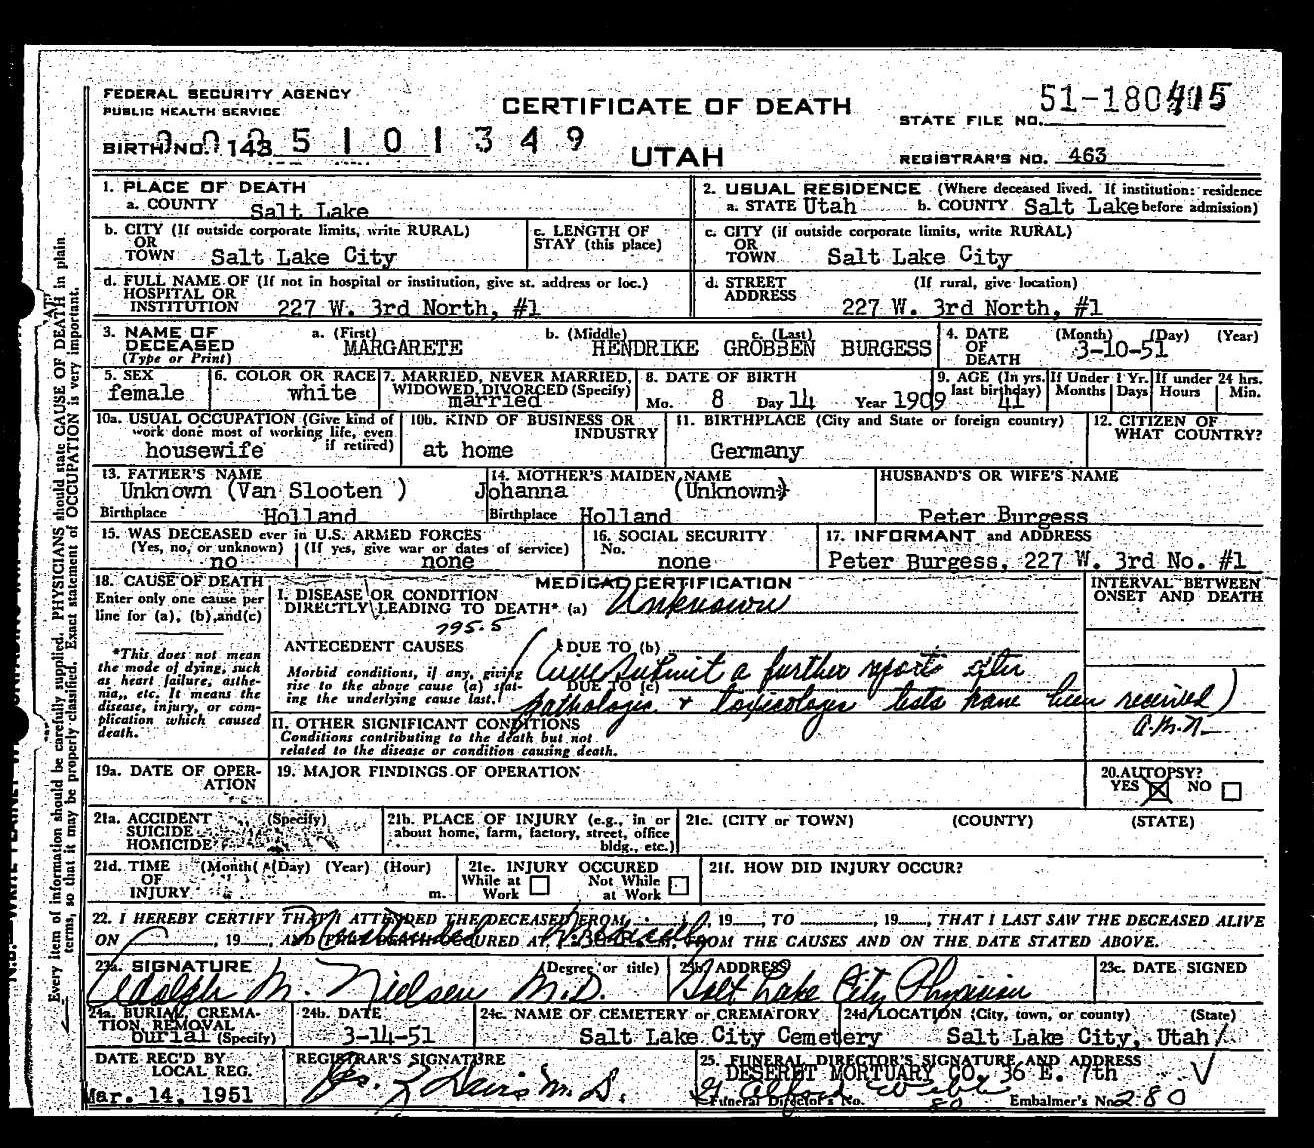 FEDERAL SECURITY AGENCY
PUBLIC HEALTH SERVICE
CERTIFICATE OF DEATH
UTAH
STATE FILE NO. 51-180415
BIRTH NO. 143 5 1 0 1 3 4 9
REGISTRAR'S NO. 463
1. PLACE OF DEATH
a. COUNTY Salt Lake
2. USUAL RESIDENCE (Where deceased lived. If institution: residence before admission)
a. STATE Utah b. COUNTY Salt Lake
b. CITY (If outside corporate limits, write RURAL) OR TOWN Salt Lake City
c. LENGTH OF STAY (this place)
c. CITY (if outside corporate limits, write RURAL) OR TOWN Salt Lake City
d. FULL NAME OF (If not in hospital or institution, give st. address or loc.) HOSPITAL OR INSTITUTION 227 W. 3rd North, #1
d. STREET ADDRESS (If rural, give location) 227 W. 3rd North, #1
3. NAME OF DECEASED (Type or Print)
a. (First) MARGARETE b. (Middle) HENDRIKE c. (Last) GROBBEN BURGESS
4. DATE OF DEATH (Month) (Day) (Year) 3-10-51
5. SEX female
6. COLOR OR RACE white
7. MARRIED, NEVER MARRIED, WIDOWED, DIVORCED (Specify) married
8. DATE OF BIRTH Mo. 8 Day 14 Year 1909
9. AGE (In yrs. last birthday) 41
If Under 1 Yr. Months Days
If under 24 hrs. Hours Min.
10a. USUAL OCCUPATION (Give kind of work done most of working life, even if retired) housewife
10b. KIND OF BUSINESS OR INDUSTRY at home
11. BIRTHPLACE (City and State or foreign country) Germany
12. CITIZEN OF WHAT COUNTRY?
13. FATHER'S NAME Unknown (Van Slooten ) Birthplace Holland
14. MOTHER'S MAIDEN NAME Johanna (Unknown) Birthplace Holland
HUSBAND'S OR WIFE'S NAME Peter Burgess
15. WAS DECEASED ever in U.S. ARMED FORCES
(Yes, no, or unknown) no (If yes, give war or dates of service) none
16. SOCIAL SECURITY No. none
17. INFORMANT and ADDRESS Peter Burgess, 227 W. 3rd No. #1
18. CAUSE OF DEATH
Enter only one cause per line for (a), (b), and (c)
*This does not mean the mode of dying, such as heart failure, asthenia, etc. It means the disease, injury, or complication which caused death.
MEDICAL CERTIFICATION
INTERVAL BETWEEN ONSET AND DEATH
I. DISEASE OR CONDITION DIRECTLY LEADING TO DEATH* (a) Unknown
795.5
ANTECEDENT CAUSES
Morbid conditions, if any, giving rise to the above cause (a) stating the underlying cause last.
DUE TO (b)
DUE TO (c)
(Will submit a further report after
pathologic & toxicologic tests have been received)
A.M.N.
II. OTHER SIGNIFICANT CONDITIONS
Conditions contributing to the death but not related to the disease or condition causing death.
19a. DATE OF OPERATION
19. MAJOR FINDINGS OF OPERATION
20. AUTOPSY? YES X NO
21a. ACCIDENT SUICIDE HOMICIDE (Specify)
21b. PLACE OF INJURY (e.g., in or about home, farm, factory, street, office bldg., etc.)
21c. (CITY or TOWN) (COUNTY) (STATE)
21d. TIME OF INJURY (Month) (Day) (Year) (Hour) m.
21e. INJURY OCCURED While at Work Not While at Work
21f. HOW DID INJURY OCCUR?
22. I HEREBY CERTIFY THAT I ATTENDED THE DECEASED FROM, 19 , TO , 19 , THAT I LAST SAW THE DECEASED ALIVE
ON , 19 , AND THAT DEATH OCCURED AT FROM THE CAUSES AND ON THE DATE STATED ABOVE.
Unattended
23a. SIGNATURE (Degree or title) Adolph M. Nielsen M.D.
23b. ADDRESS Salt Lake City Physician
23c. DATE SIGNED
24a. BURIAL, CREMATION, REMOVAL (Specify) burial
24b. DATE 3-14-51
24c. NAME OF CEMETERY or CREMATORY Salt Lake City Cemetery
24d. LOCATION (City, town, or county) (State) Salt Lake City, Utah
DATE REC'D BY LOCAL REG. Mar. 14, 1951
REGISTRAR'S SIGNATURE
M.D.
25. FUNERAL DIRECTOR'S SIGNATURE AND ADDRESS
DESERET MORTUARY CO. 36 E. 7th
Funeral Director's No. 80 Embalmer's No. 280
Every item of information should be carefully supplied. PHYSICIANS should state CAUSE OF DEATH in plain
terms, so that it may be properly classified. Exact statement of OCCUPATION is very important.